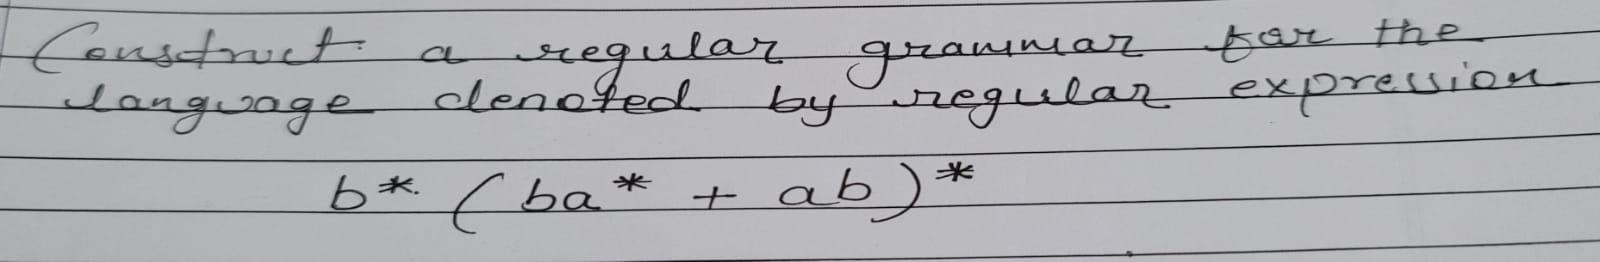 Construct a regular grammar for the
language denoted by regular expression
b* (ba* + ab)*